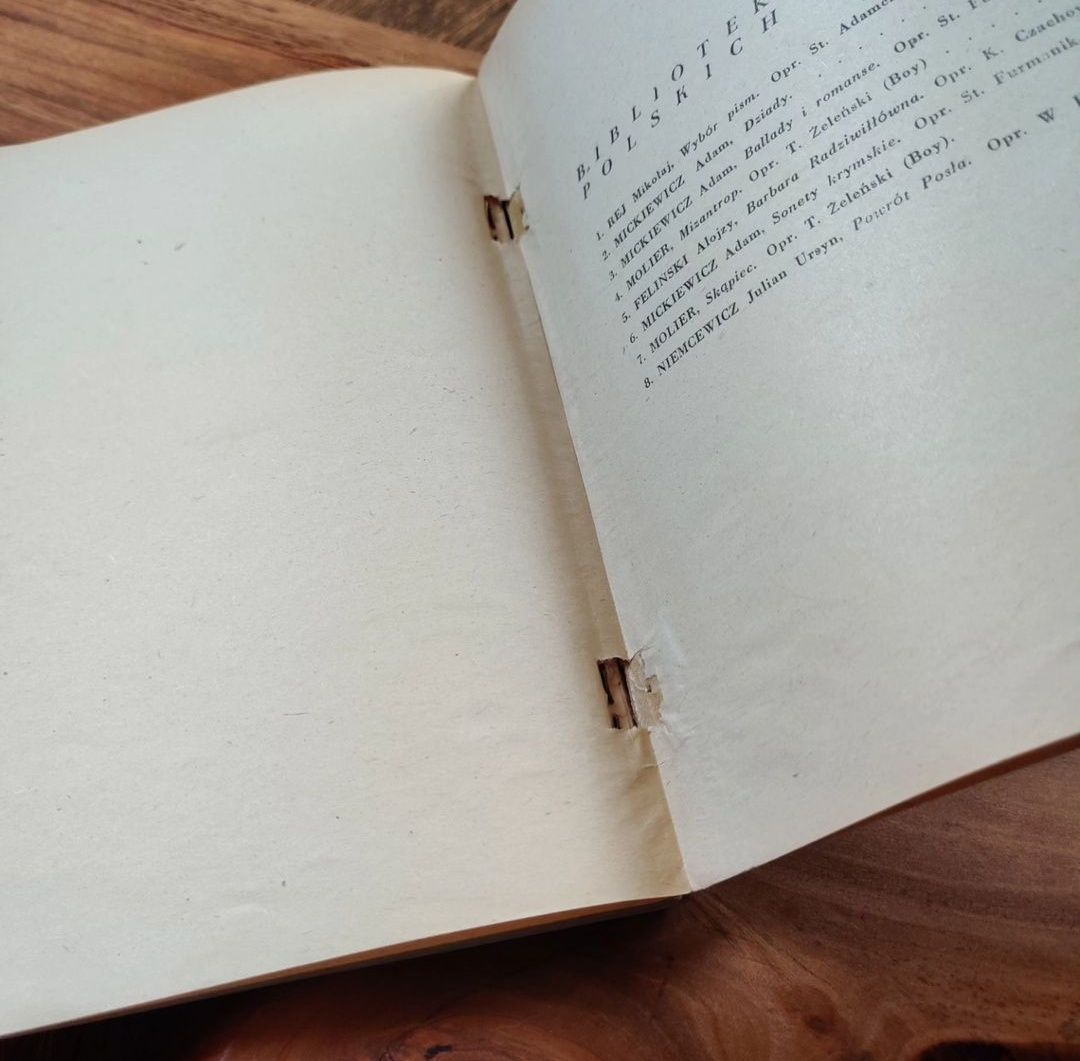 B I B L I O T E K
P O L S K I C H
1. REJ Mikołaj, Wybór pism. Opr. St. Adamcz
2. MICKIEWICZ Adam, Dziady. . . . . .
3. MICKIEWICZ Adam, Ballady i romanse. Opr. St. Fu
4. MOLIER, Mizantrop. Opr. T. Żeleński (Boy) . . . .
5. FELIŃSKI Alojzy, Barbara Radziwiłłówna. Opr. K. Czachow
6. MICKIEWICZ Adam, Sonety krymskie. Opr. St. Furmanik
7. MOLIER, Skąpiec. Opr. T. Żeleński (Boy).
8. NIEMCEWICZ Julian Ursyn, Powrót Posła. Opr. W